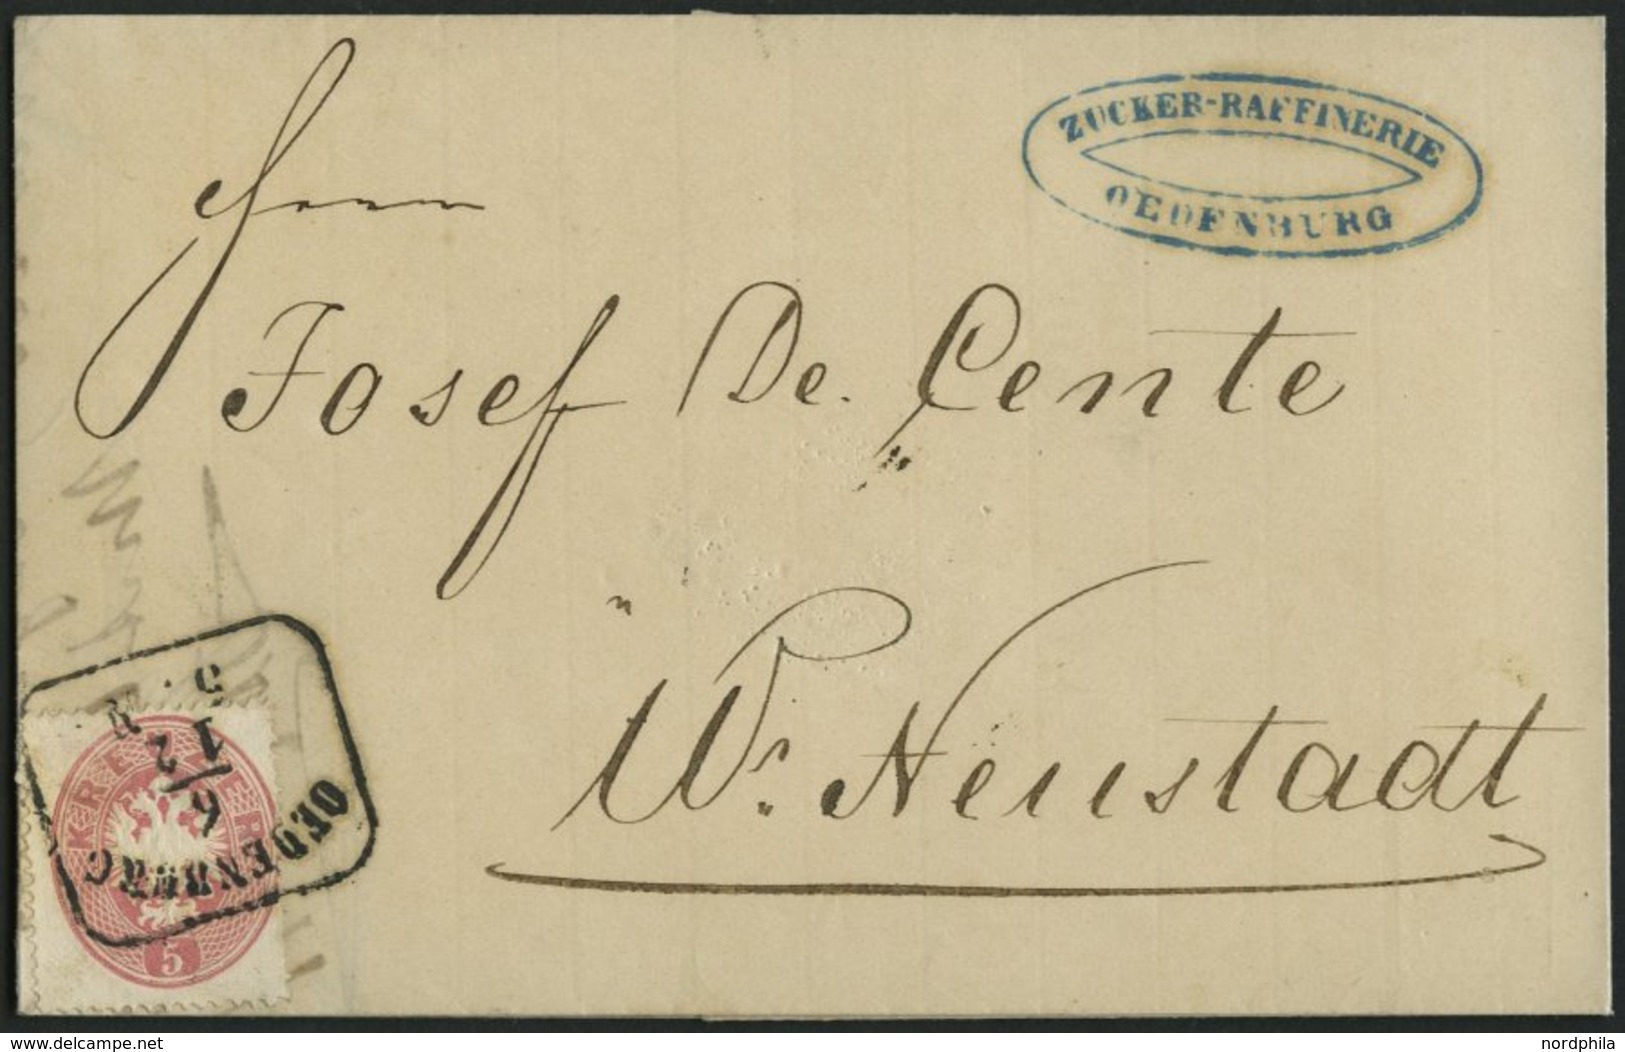 ZUCKER-RAFFINERIE
OEDENBURG
Herrn
Josef De. Cente
Wr. Neustadt
OEDENBURG
6/12
5.
KREUZER
5
www.delcampe.net
nordphila